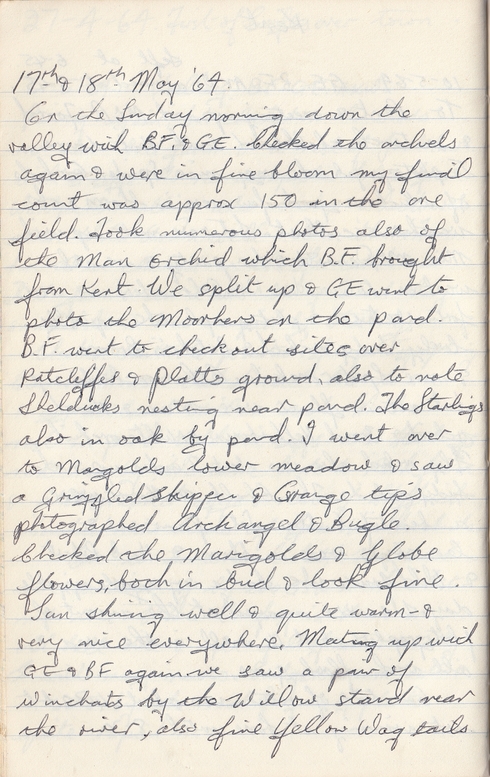 17th & 18th May '64.
On the Sunday morning down the
valley with B.F. & GE. Checked the orchids
again & were in fine bloom my final
count was approx 150 in the one
field. Took numerous photos also of
the Man Orchid which B.F. brought
from Kent. We split up & GE went to
photo the Moorhens on the pond.
B.F. went to check out sites over
Ratcliffes & Platts ground, also to note
Shelducks nesting near pond. The Starlings
also in oak by pond. I went over
to Marigolds lower meadow & saw
a Grizzled Skipper & Orange tips
photographed Archangel & Bugle.
Checked the Marigolds & Globe
flowers, both in bud & look fine.
Sun shining well & quite warm - &
very nice everywhere. Meeting up with
GE & BF again we saw a pair of
Winchats by the Willow stand near
the river, also fine Yellow Wag tails